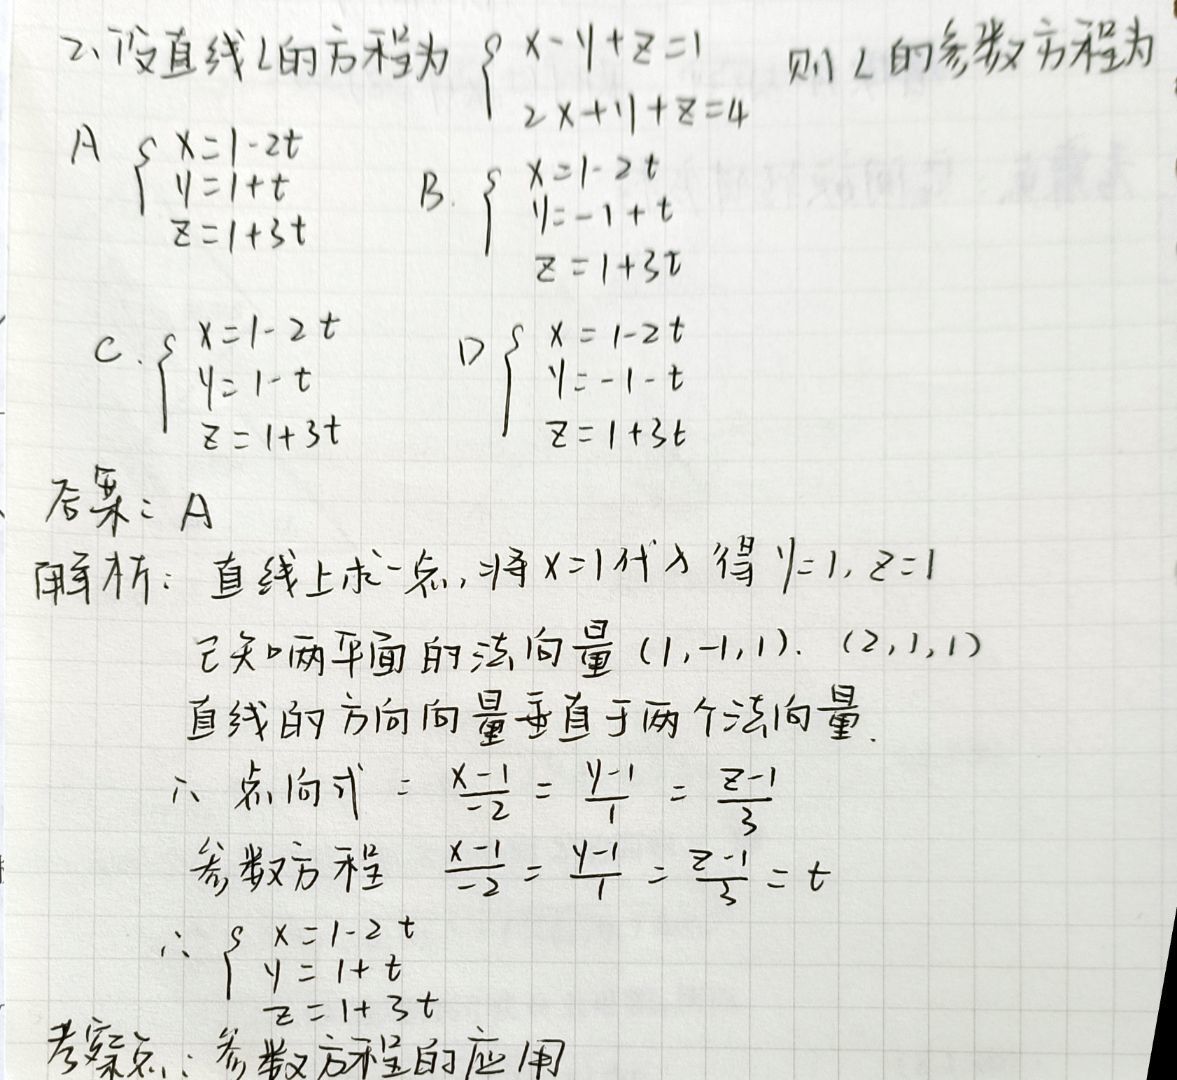 2、设直线L的方程为 { x-y+z=1 则L的参数方程为
2x+y+z=4
A { x=1-2t
y=1+t
z=1+3t
B. { x=1-2t
y=-1+t
z=1+3t
C. { x=1-2t
y=1-t
z=1+3t
D { x=1-2t
y=-1-t
z=1+3t
答案: A
解析: 直线上求一点,将x=1代入得y=1,z=1
已知两平面的法向量(1,-1,1). (2,1,1)
直线的方向向量垂直于两个法向量.
∴ 点向式: (x-1)/(-2) = (y-1)/1 = (z-1)/3
参数方程 (x-1)/(-2) = (y-1)/1 = (z-1)/3 = t
∴ { x=1-2t
y=1+t
z=1+3t
考察点: 参数方程的应用